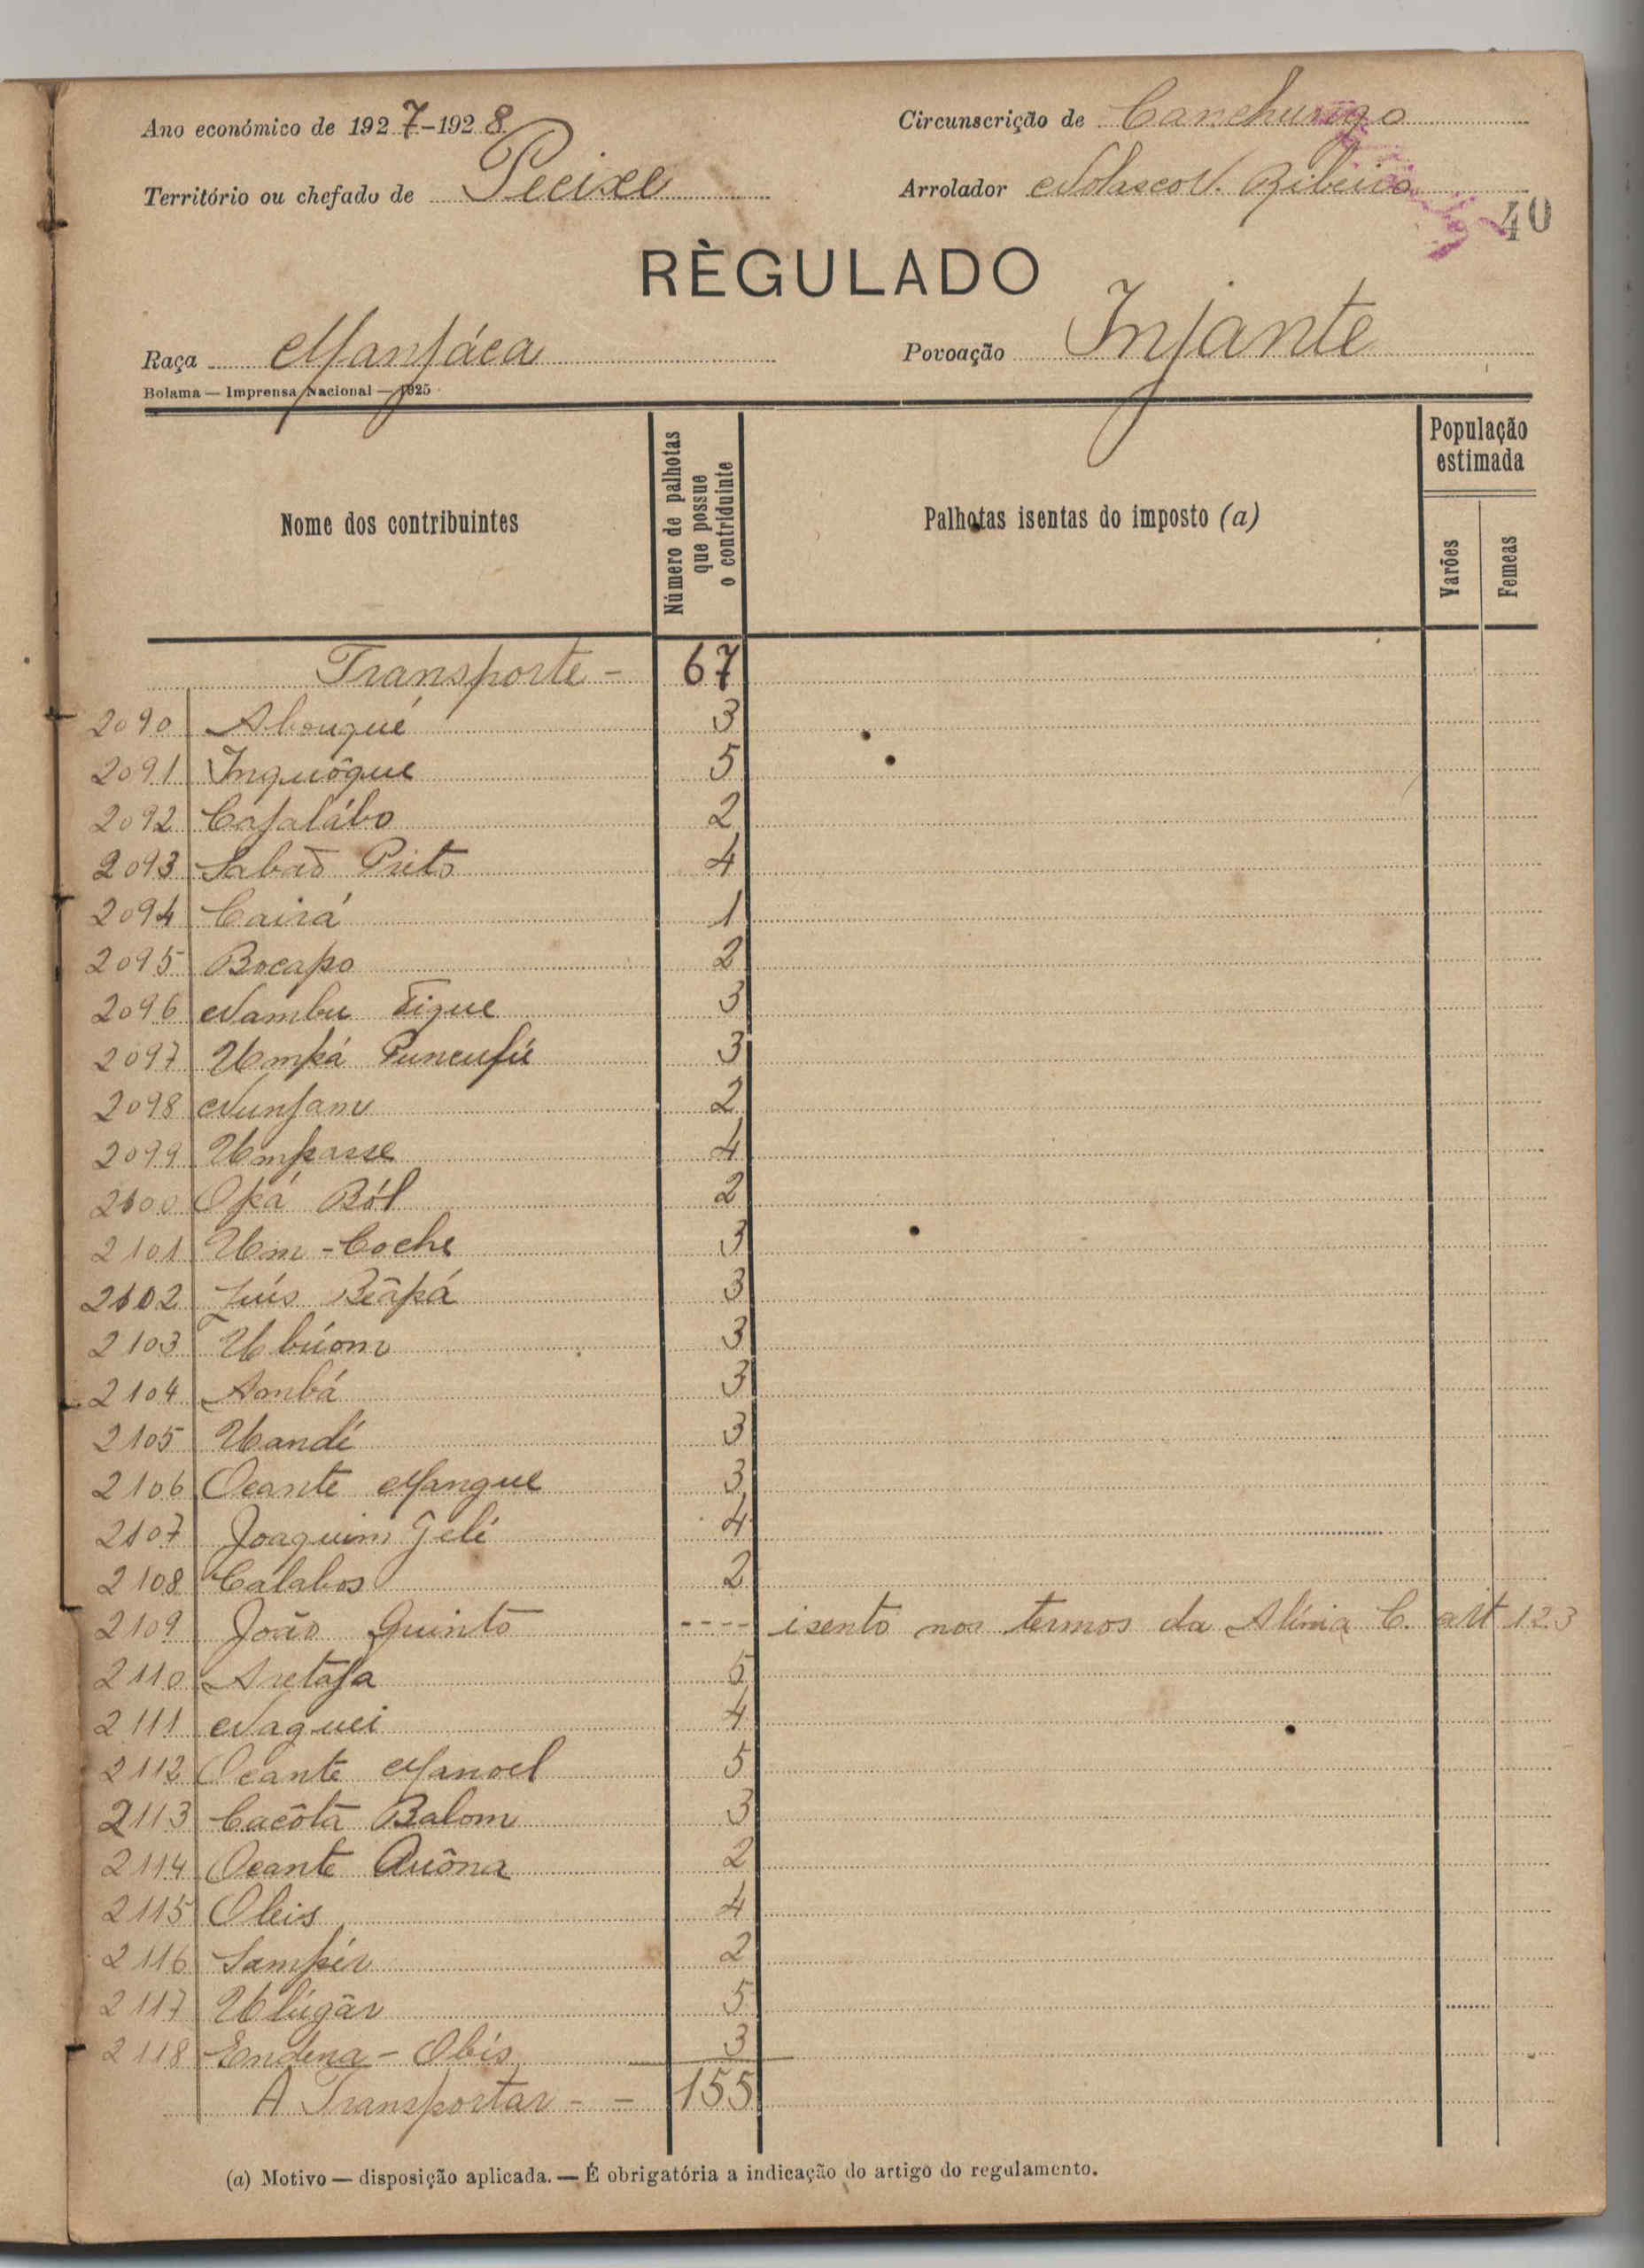 Ano económico de 1927-1928
Circunscrição de Canchungo
Território ou chefado de Pecixe
Arrolador Nolasco V. Ribeiro
40
RÈGULADO
Raça Manjáca
Povoação Injante
Bolama — Imprensa Nacional — 1925
Nome dos contribuintes
Número de palhotas que possue o contriduinte
Palhotas isentas do imposto (a)
População estimada
Varões
Femeas
Transporte - 67
2090 Abouqué 3
2091 Inquôque 5
2092 Cajalábo 2
2093 Sabão Prito 4
2094 Cairá 1
2095 Bocapo 2
2096 Nambu Tigue 3
2097 Umpá Puncufú 3
2098 Nunjam 2
2099 Umpasse 4
2100 Opá Ból 2
2101 Um-Coche 3
2102 Luís Beâpá 3
2103 Ubúom 3
2104 Ambá 3
2105 Uandí 3
2106 Ocante Mangue 3
2107 Joaquim Gelí 4
2108 Calabos 2
2109 João Quinto ---- isento nos termos da Alínia C. art 123
2110 Aretafa 5
2111 Naquei 4
2112 Ocante Manoel 5
2113 Cacôta Balom 3
2114 Ocante Quôna 2
2115 Oleis 4
2116 Sampír 2
2117 Ulúgâr 5
2118 Endena - Obis 3
A Transportar - - 155
(a) Motivo — disposição aplicada. — É obrigatória a indicação do artigo do regulamento.